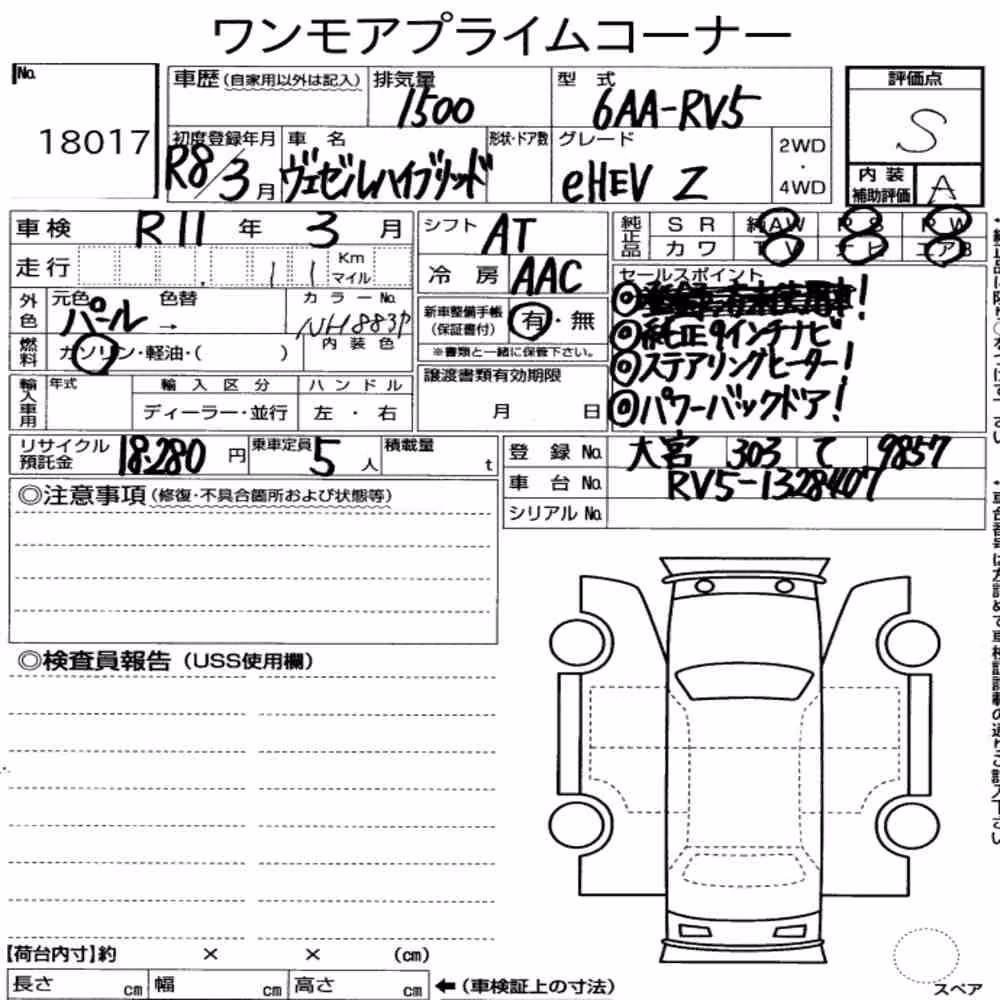 ワンモアプライムコーナー
No. 18017
車歴(自家用以外は記入)
排気量 1500
型式 6AA-RV5
評価点 S
初度登録年月 R8/3月
車名 ヴェゼルハイブリッド
形状・ドア数
グレード eHEV Z
2WD・4WD
内装補助評価 A
車検 R11年 3月
シフト AT
純正品 SR 純AW PS PW
カワ TV ナビ エアB
走行 11 Km マイル
冷房 AAC
セールスポイント
外色 元色 パール 色替 → カラーNo. NH883P
内装色
新車整備手帳(保証書付) 有・無
※書類と一緒に保管下さい。
◎純正9インチナビ
◎ステアリングヒーター!
◎パワーバックドア!
燃料 ガソリン・軽油・( )
輸入車用 年式 輸入区分 ハンドル
ディーラー・並行 左・右
譲渡書類有効期限
月 日
リサイクル預託金 18.280円
乗車定員 5人
積載量 t
登録No. 大宮 303 て 9857
車台No. RV5-1328407
シリアルNo.
◎注意事項(修復・不具合箇所および状態等)
◎検査員報告(USS使用欄)
【荷台内寸】約 × × (cm)
長さ cm 幅 cm 高さ cm ←(車検証上の寸法)
スペア